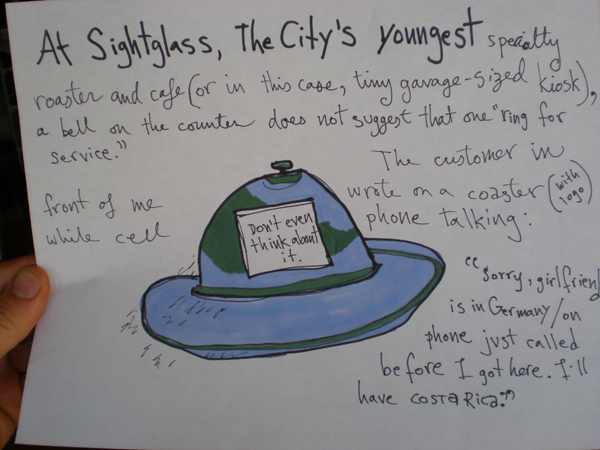 At Sightglass, The City's youngest specialty
roaster and cafe (or in this case, tiny garage-sized kiosk),
a bell on the counter does not suggest that one "ring for
service."
The customer in
front of me
wrote on a coaster (with logo)
while cell
phone talking:
Don't even
think about
it.
"Sorry, girlfriend
is in Germany/on
phone just called
before I got here. I'll
have COSTA RICA."